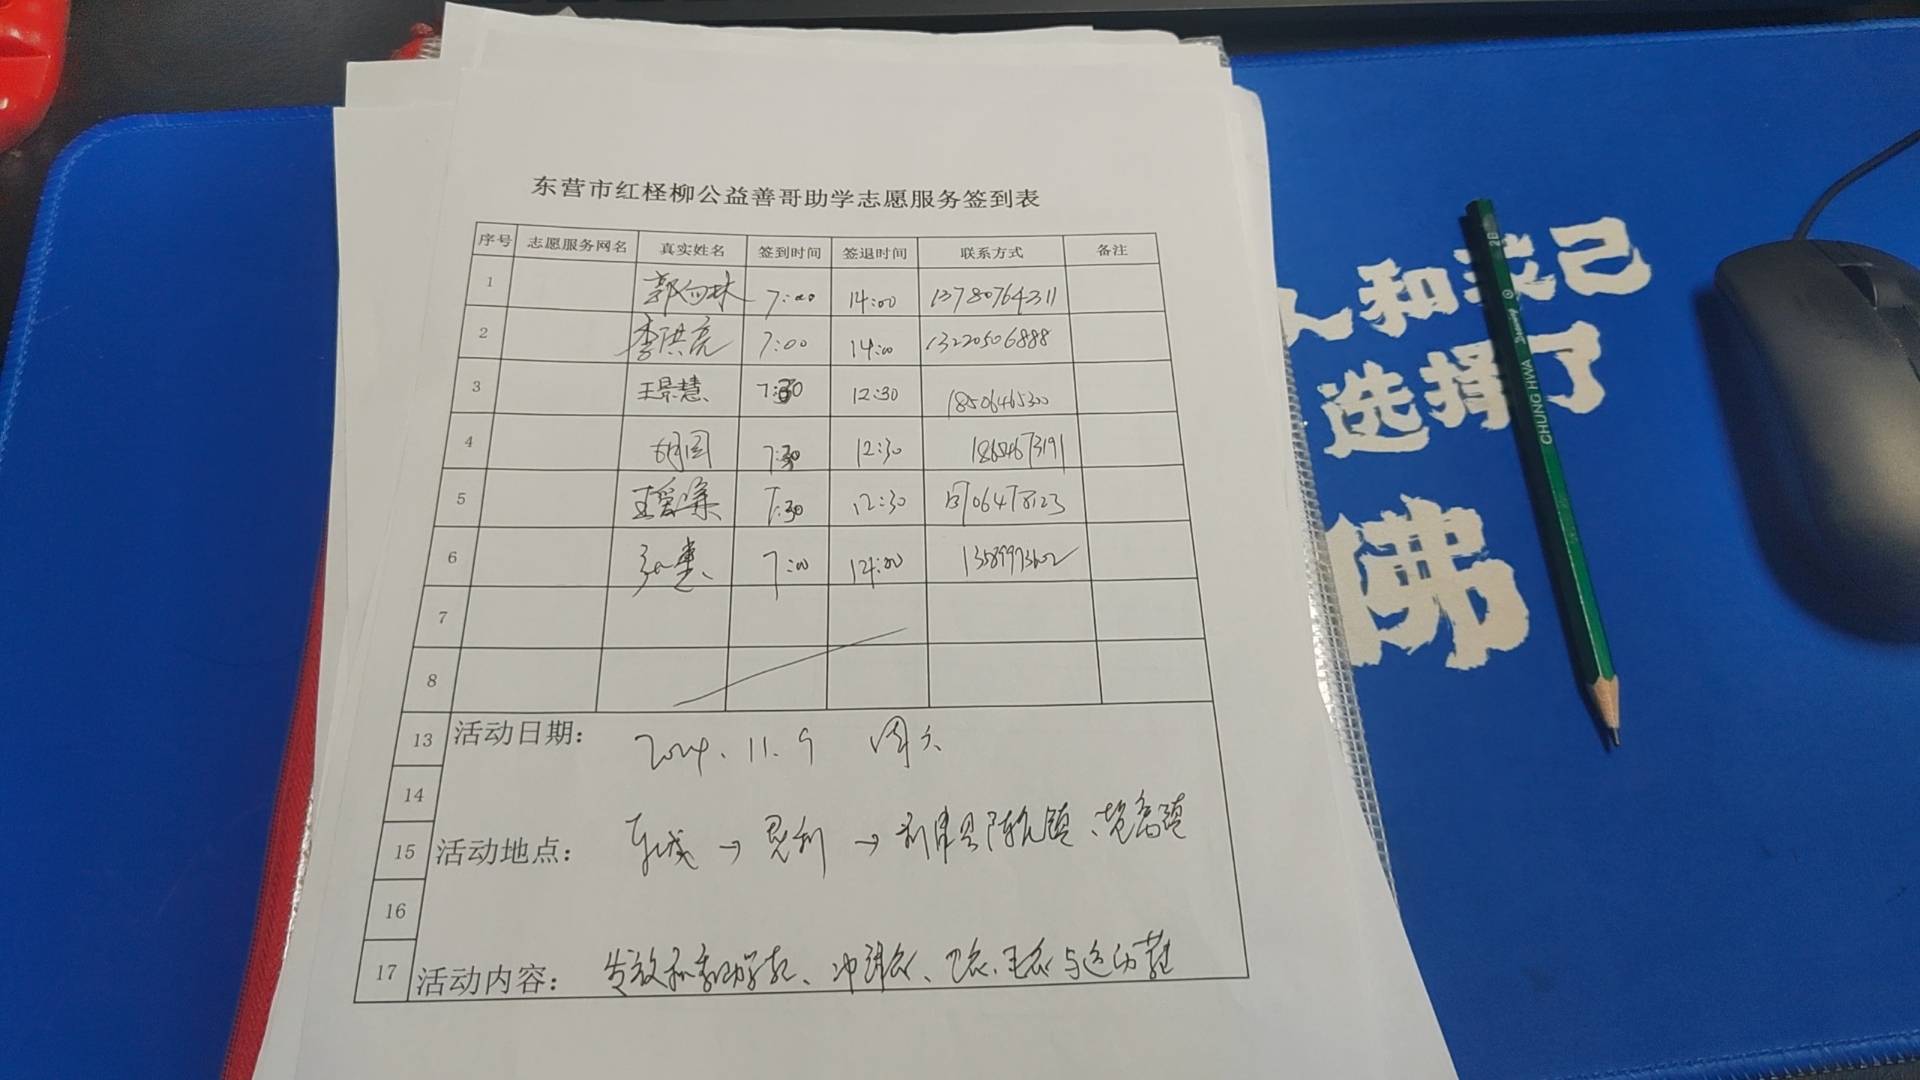 东营市红柽柳公益善哥助学志愿服务签到表
序号 志愿服务网名 真实姓名 签到时间 签退时间 联系方式 备注
1 郭向林 7:00 14:00 13780764311
2 李洪亮 7:00 14:00 13220506888
3 王景慧 7:30 12:30 18506465300
4 胡园 7:30 12:30
5 7:30 12:30 13706478123
6 7:00 14:00 13589973602
7
8
13 活动日期: 2024.11.9 周六
14
15 活动地点: 东城 → 垦利 → 利津县陈庄镇、
16
17 活动内容: 发放 助学款、冲锋衣、卫衣、毛衣与运动鞋
人和自己
选择了
佛
CHUNG HWA
2B